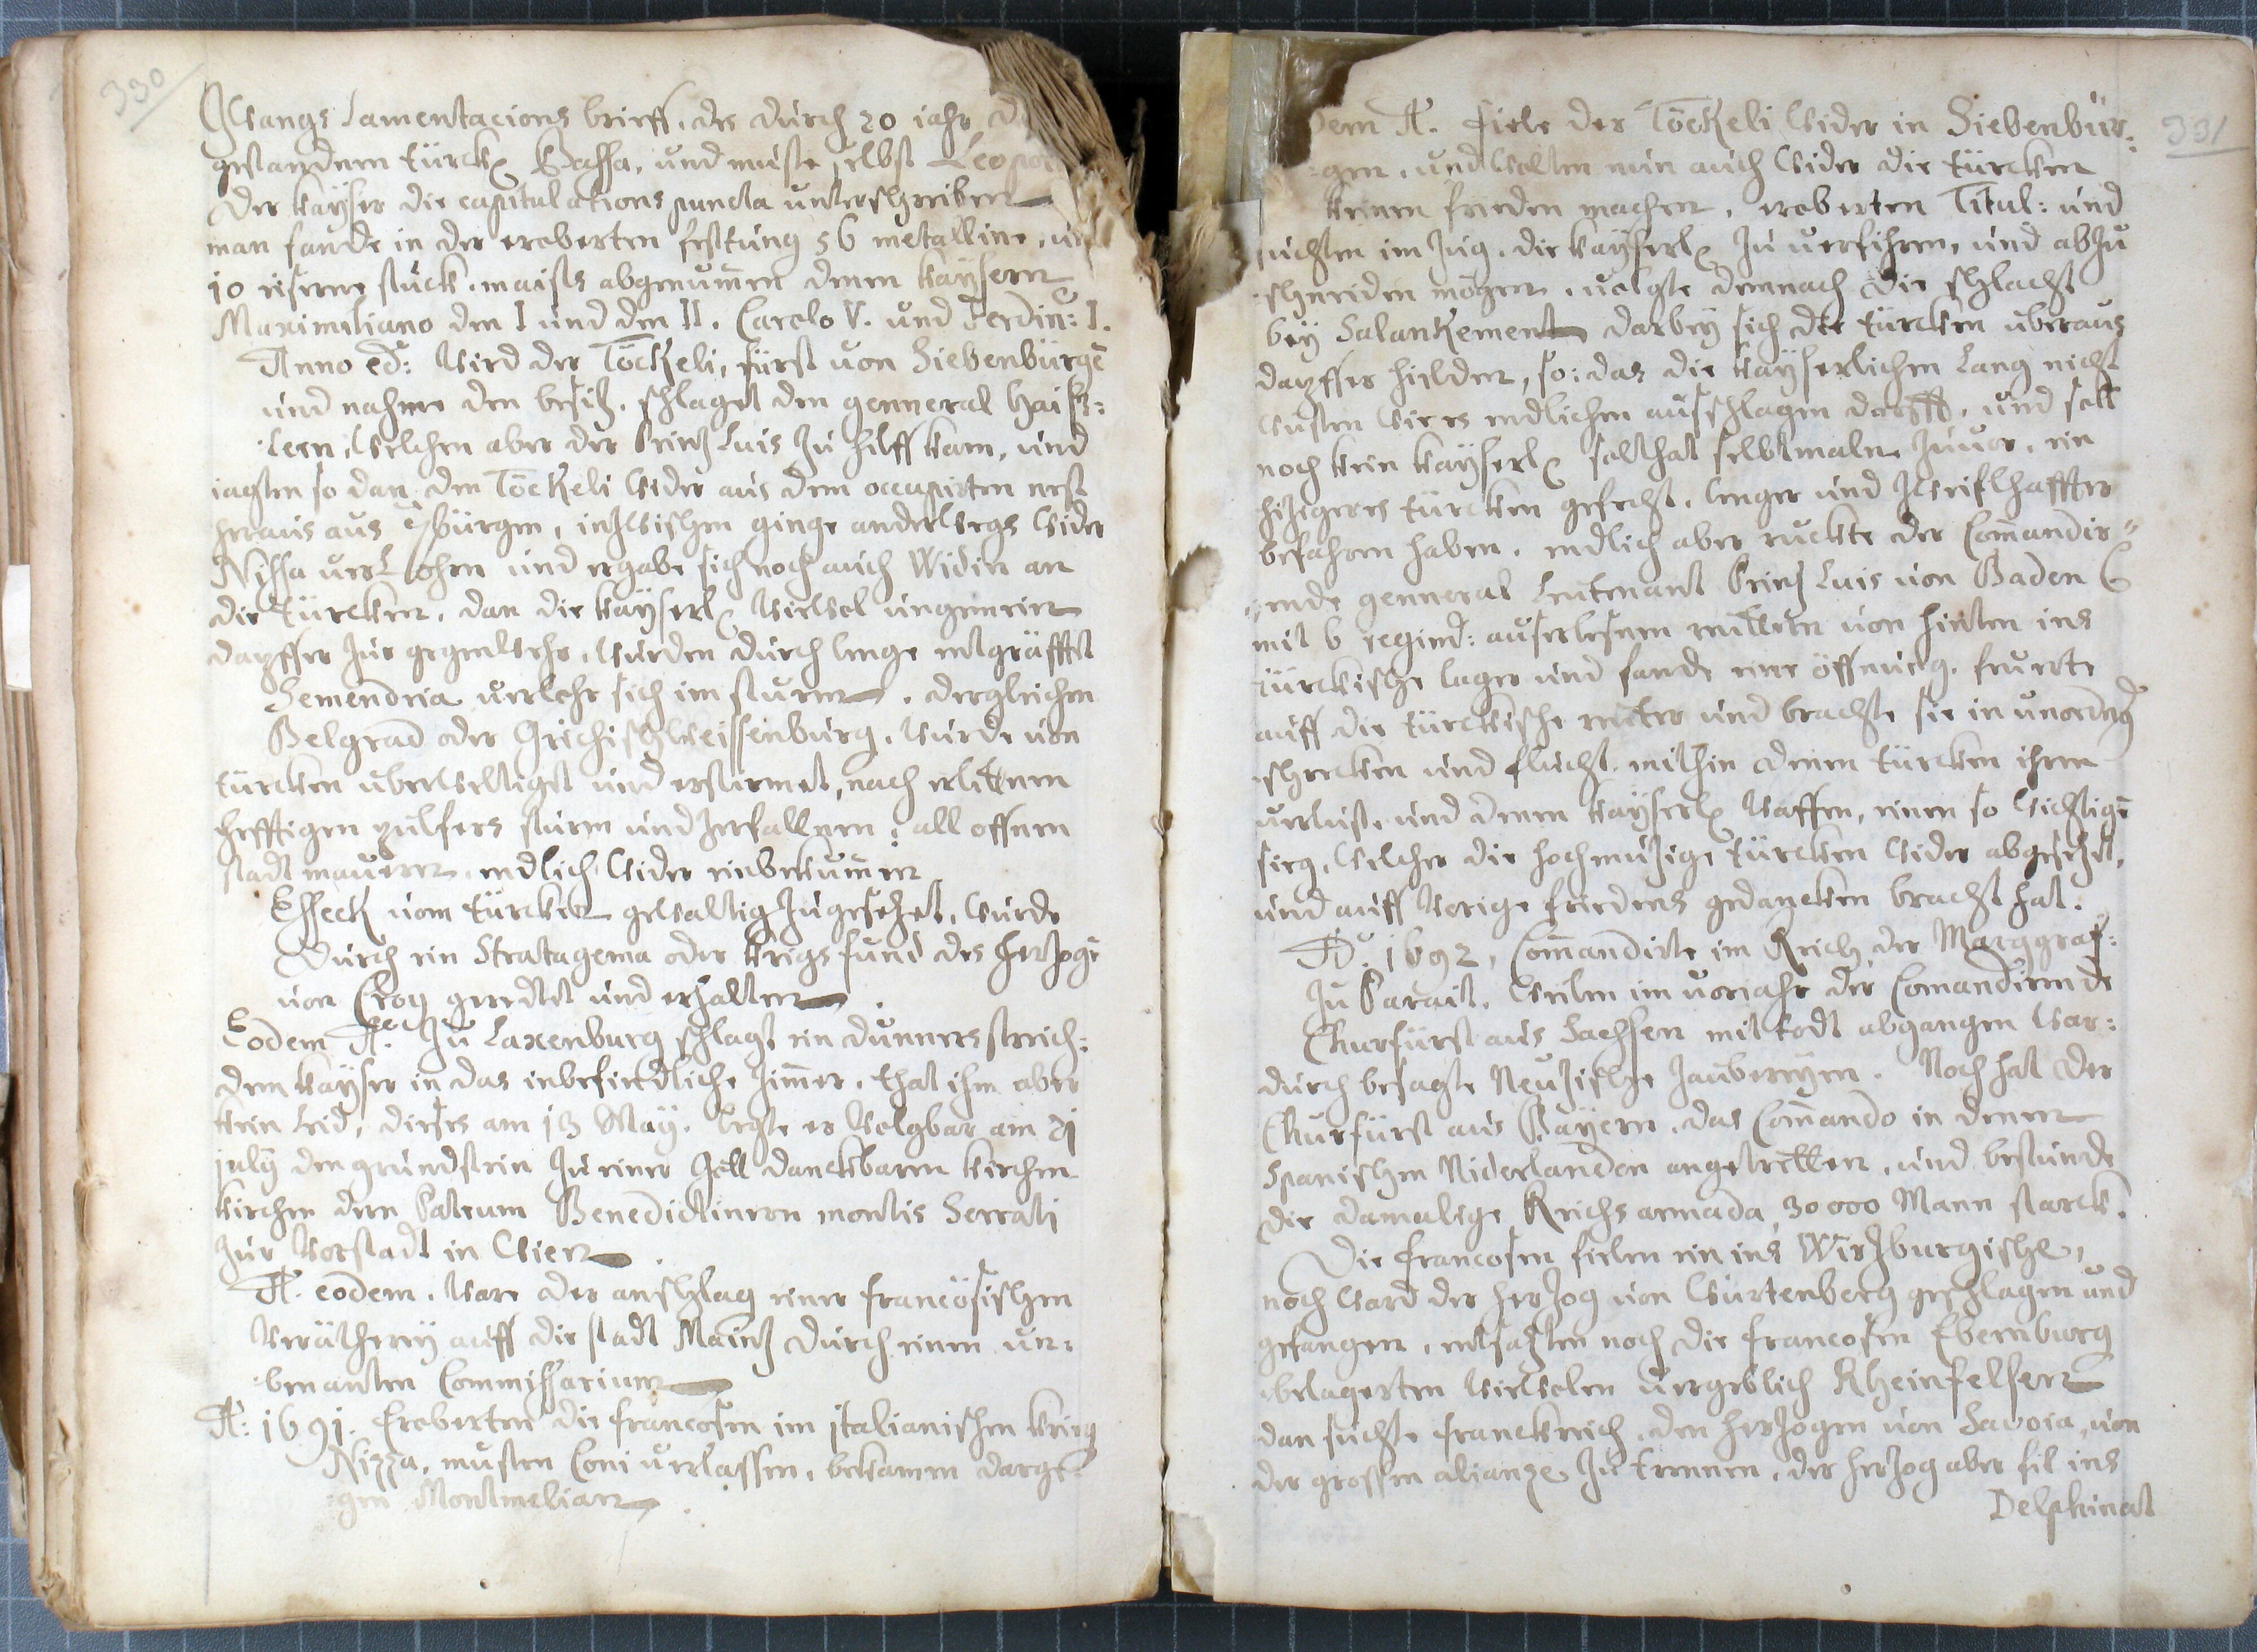 330
Zwangs Lamentacions brieff, des durch 20 jahr d
gestandnen türck: Bassa, und muste selbst Leopol
der kayser die capitulations puncta unterschreiben
man fande in der eroberten festung 56 metalline, und
10 eiserne stuck, maists abgenumen denen kaysern
Maximiliano den I und den II. Carolo V. und Ferdin: I.
Anno ed: wird der Töckeli, fürst von Siebenbürgē
und nahme den besitz, schlaget den genneral Haiß=
lern, welchen aber der Prinz Luis zu hilff kam, und
jagten so dan den Töckeli wider aus dem occupirten nest
heraus aus 7bürgen, inzwischen ginge anderwegs wider
Nissa verlohrn und ergabe sich noch auch Widin an
die türcken, dan die kayserl: wiewol ungemein
dapffer zur gegenwehr, wurden durch lenge entgräfftet
Semendria verlohr sich im sturm. dergleichen
Belgrad oder Grichischweissenburg, wurde von
türcken überweltiget und ersturmet, nach erlittnem
hefftigen pulfers sturm und zerfallnen: all offnen
stadt mauren, endlich wider einbekumen
Esseck vom türcken gewaltig zugesetzet, wurde
Durch ein Stratagema oder krigs fund des herzogē
von Croy gerettet und erhalten.
Eodem Aō. Zu Laxenburg schlagt ein dunnersstreich:
dem kayser in das inbefindliche zimmer, that ihm aber
kein leid, dieses am 13 May. legte er wolgbar am 21
july den grundstein zu einer Zell danckbarn kirchen
kirchen dern Patrum Benedictinern montis Serrati
zur Vorstadt in Wien.
A. eodem. ware der anschlag einer francösischen
Verätherey auff die stadt Mainz durch einen un=
benanten Commissarium
A: 1691. Eroberten die francosen im italianischen krieg
Nizza, musten Coni verlassen, bekamen darge=
gen Montmelian.
331
dem A. fiele der Töckeli wider in Siebenbür=
gen, und wolten nun auch wider die türcken
keinen frieden machen, eroberten Titul: und
suchten im zug, die kayserl: zu verfihren, und abzu
schneiden mögen, volgte demnach die schlacht
bey Salankement darbey sich die türcken überaus
dapffer hielden, so: das die kayserlichen lang nicht
wusten wie es endlichen ausschlagen dorfft, und soll
noch kein kayserl: soldhat selbtmaln zuvor, ein
hizigeres türcken gefecht, lenger und zweiflhaffter
befahren haben. endlich aber ruckte der Commandir=
ende genneral Leutenant Prinz Luis von Baden
mit 6 regimd: auserlesnen reuttern von hinten ins
türckische lager und fande eine öffnung, feuerte
auff die türckische reuter und brachte sie in unordnūg
schrecken und flucht, mithin denen türcken ihren
verlust, und denen kayserl: waffen, einen so wichtigē
sieg, welcher die hochmüzige türcken wider abgesezt,
und auff vorige friedens gedancken bracht hat.
Aō. 1692, Commandirte im Reich der Marggraf:
zu Parait, weilen im vorjahr der Comandirende
Churfürst aus Sachsen mit todt abgangen war:
durch besagte Neuzische zaubereyen. Noch hat der
Churfürst aus Bayern, das Commando in denen
Spanischen Niderlanden angetretten, und bestunde
die damalige Reichs armada, 30000 Mann starck.
Die francosen fielen ein ins Wirzburgische,
noch ward der herzog von Würtenberg geschlagen und
gefangen, entsazten noch die francosen Ebernburg
belagerten wiewolen vergeblich Rheinfelsen
dan suchte franckreich, den herzogen von Savoia, von
der grossen alianze zu trennen, der herzog aber fil ins
Delphinat